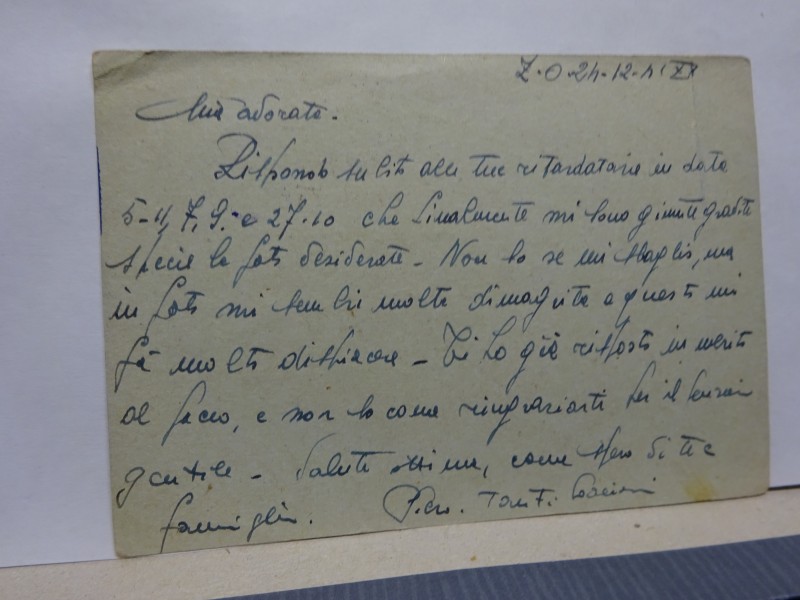 Z.O. 24-12-41 XX
Mia adorata.
Rispondo subito alle tue ritardatarie in data
5-4, 7, 9. e 27.10 che finalmente mi sono giunte gradite
specie la foto desiderata - Non so se mi sbaglio, ma
in foto mi sembri molto dimagrita e questo mi
fà molto dispiacere - Ti ho già risposto in merito
al pacco, e non so come ringraziarti per il pensiero
gentile - Salute ottima, come spero di te e
famiglia. Tanti bacioni